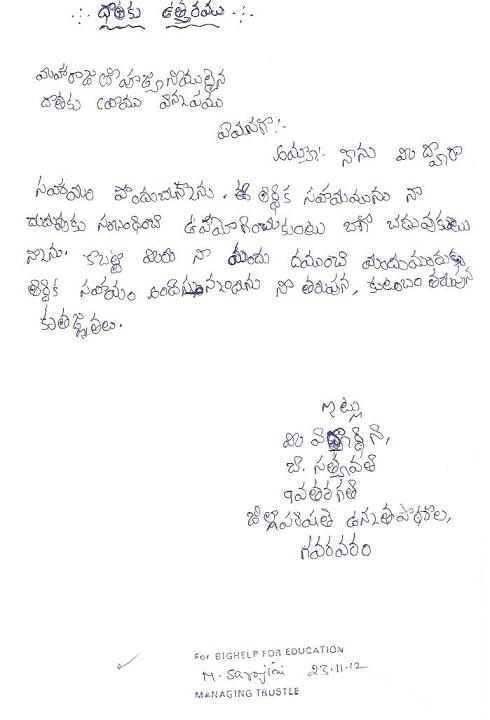 దాతకు ఉత్తరము
మహారాజశ్రీ పూజ్యనీయులైన
దాతకు వ్రాయు విన్నపము
ఏమనగా:-
అయ్యా:- నాను మీ ద్వారా
సహాయం పొందుచున్నాను. ఈ ఆర్థిక సహాయమును నా
చదువుకు సంబంధించి ఉపయోగించుకుంటు బాగా చదువుకుంటు
నాను. కాబట్టి మీరు నా యందు దయుంచి ముందుమురుకూ
ఆర్థిక సహాయం అందిస్తున్నందును నా తరుపున, కుటుంబం తరుపున
కృతజ్ఞతలు.
ఇట్లు
మీ విద్యార్థిని,
బి. సత్యవతి
9వతరగతి
జిల్లాపరిషత్ ఉన్నతపాఠశాల,
గవరవరం
For BIGHELP FOR EDUCATION
M. Sarojini 23-11-12
MANAGING TRUSTEE